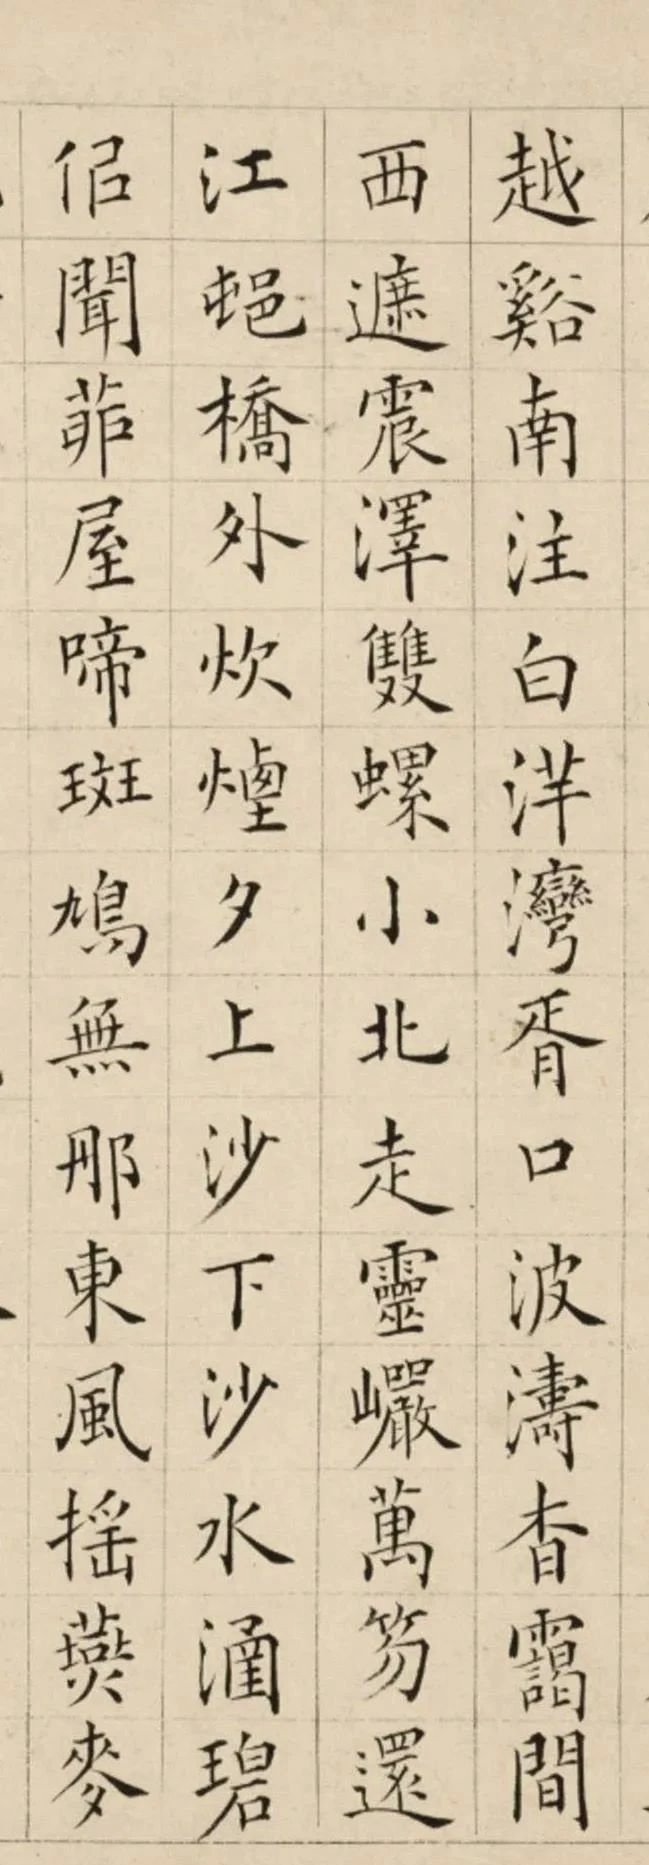 越谿南注白洋灣胥口波濤杳靄間
西遮震澤雙螺小北走靈巖萬笏還
江蜺橋外炊煙夕上沙下沙水涵碧
但聞茆屋啼斑鳩無那東風搖燕麥